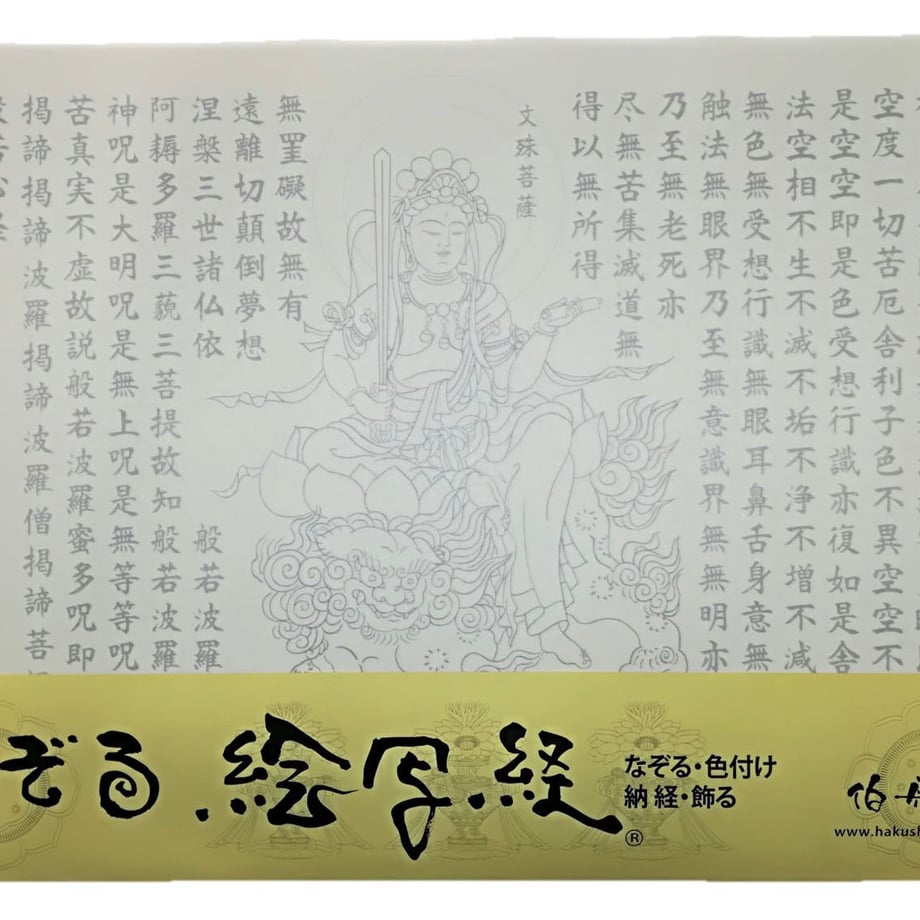 空度一切苦厄舎利子色不異空空不
是空空即是色受想行識亦復如是舎
法空相不生不滅不垢不浄不増不減
無色無受想行識無眼耳鼻舌身意無
触法無眼界乃至無意識界無明亦
乃至無老死亦
尽無苦集滅道無
得以無所得
文殊菩薩
無罣礙故無有
遠離切顛倒夢想
涅槃三世諸仏依 般若波羅
阿耨多羅三藐三菩提故知般若波羅
神呪是大明呪是無上呪是無等等呪
苦真実不虚故説般若波羅蜜多呪即
掲諦掲諦 波羅掲諦 波羅僧掲諦 菩
ぞる 絵写経®
なぞる・色付け
納経・飾る
伯
www.hakush